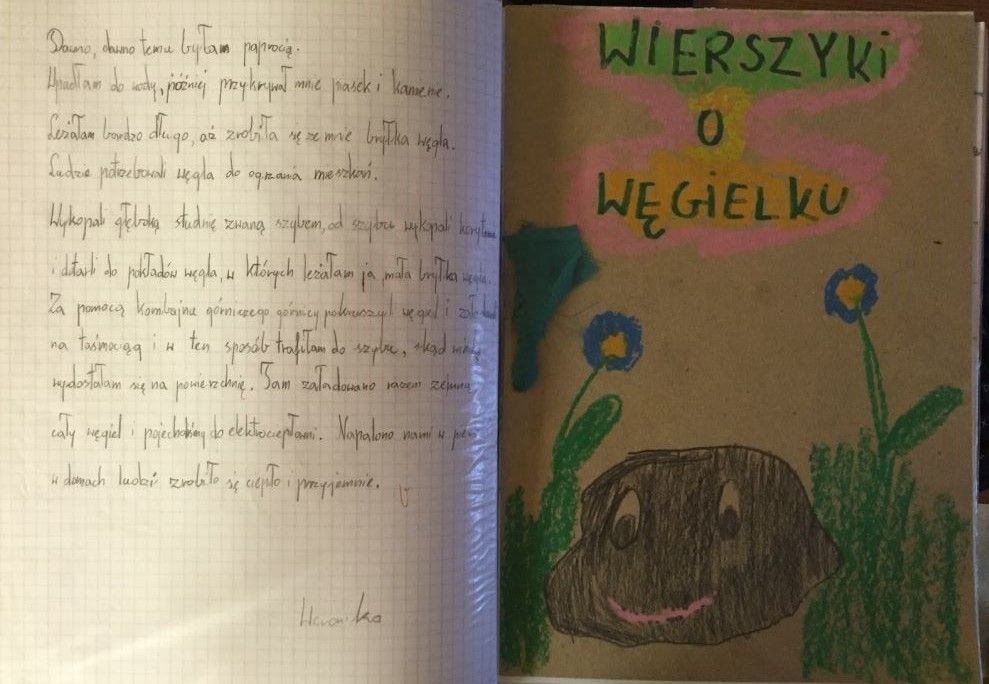 Dawno, dawno temu byłam paprocią.
Upadłam do wody, później przykrywał mnie piasek i kamienie.
Leżałam bardzo długo, aż zrobiła się ze mnie bryłka węgla.
Ludzie potrzebowali węgla do ogrzania mieszkań.
Wykopali głęboką studnię zwaną szybem, od szybu wykopali
i dotarli do pokładów węgla, w których leżałam ja, mała bryłka węgla.
Za pomocą kombajnu górniczego górnicy pokruszyli węgiel i
na taśmociąg i w ten sposób trafiłam do szybu, skąd
wydostałam się na powierzchnię. Tam załadowano razem zemną
cały węgiel i do elektrociepłowni. Napalono nami w
w domach ludzi zrobiło się ciepło i przyjemnie.
Weronika
WIERSZYKI
O
WĘGIELKU